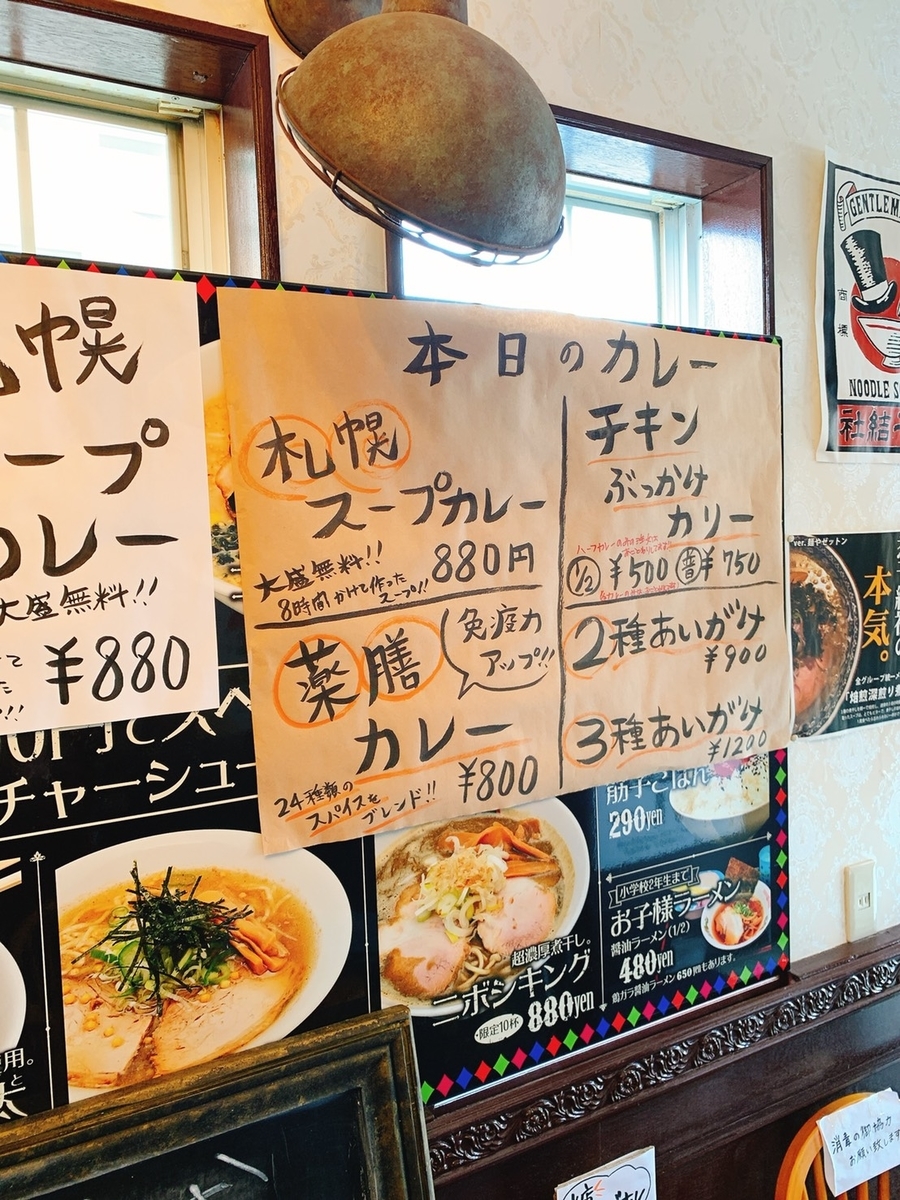 札幌
ープ
カレー
大盛無料!!
¥880
本日のカレー
札幌
スープカレー
大盛無料!!
8時間かけて作った
スープ!!
880円
薬膳
カレー
免疫力
アップ!!
24種類の
スパイスを
ブレンド!!
¥800
チキン
ぶっかけ
カリー
1/2 ¥500 普¥750
2種あいがけ
¥900
3種あいがけ
¥1200
チャーシュー
超濃厚煮干し。
ニボシキング
・限定10杯 880yen
筋子ごはん
290yen
小学校2年生まで
お子様ラーメン
醤油ラーメン(1/2)
480yen
鶏ガラ醤油ラーメン 650円もあります。
GENTLEM
商標
NOODLE S
社結
ver. 麺やゼットン
本気。
消毒の御協力
お願い致します